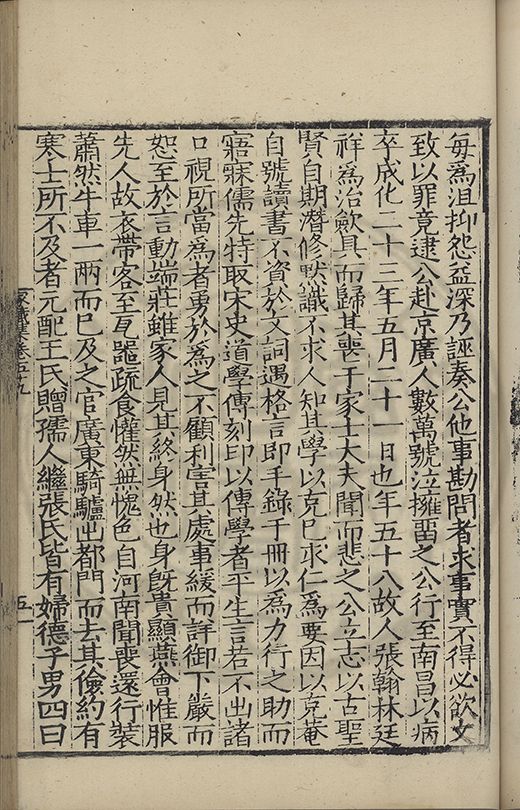 毎為沮抑怨益深乃誣奏公他事勘問者求事實不得必欲文
致以罪竟逮公赴京廣人數萬號泣擁畱之公行至南昌以病
卒成化二十三年五月二十一日也年五十八故人張翰林廷
祥為治歛具而歸其喪于家士大夫聞而悲之公立志以古聖
賢自期潛修默識不求人知其學以克巳求仁為要因以克菴
自號讀書不資於文詞遇格言即手錄于冊以為力行之助而
寤寐儒先特取宋史道學傳刻印以傳學者平生言若不出諸
口視所當為者勇於為之不顧利害其處事緩而詳御下嚴而
恕至於言動端莊雖家人見其終身然也身旣貴顯燕會惟服
先人故衣帶客至瓦噐疏食懽然無愧色自河南聞喪還行裝
蕭然牛車一兩而巳及之官廣東騎驢出都門而去其儉約有
寒士所不及者元配王氏贈孺人繼張氏皆有婦德子男四曰